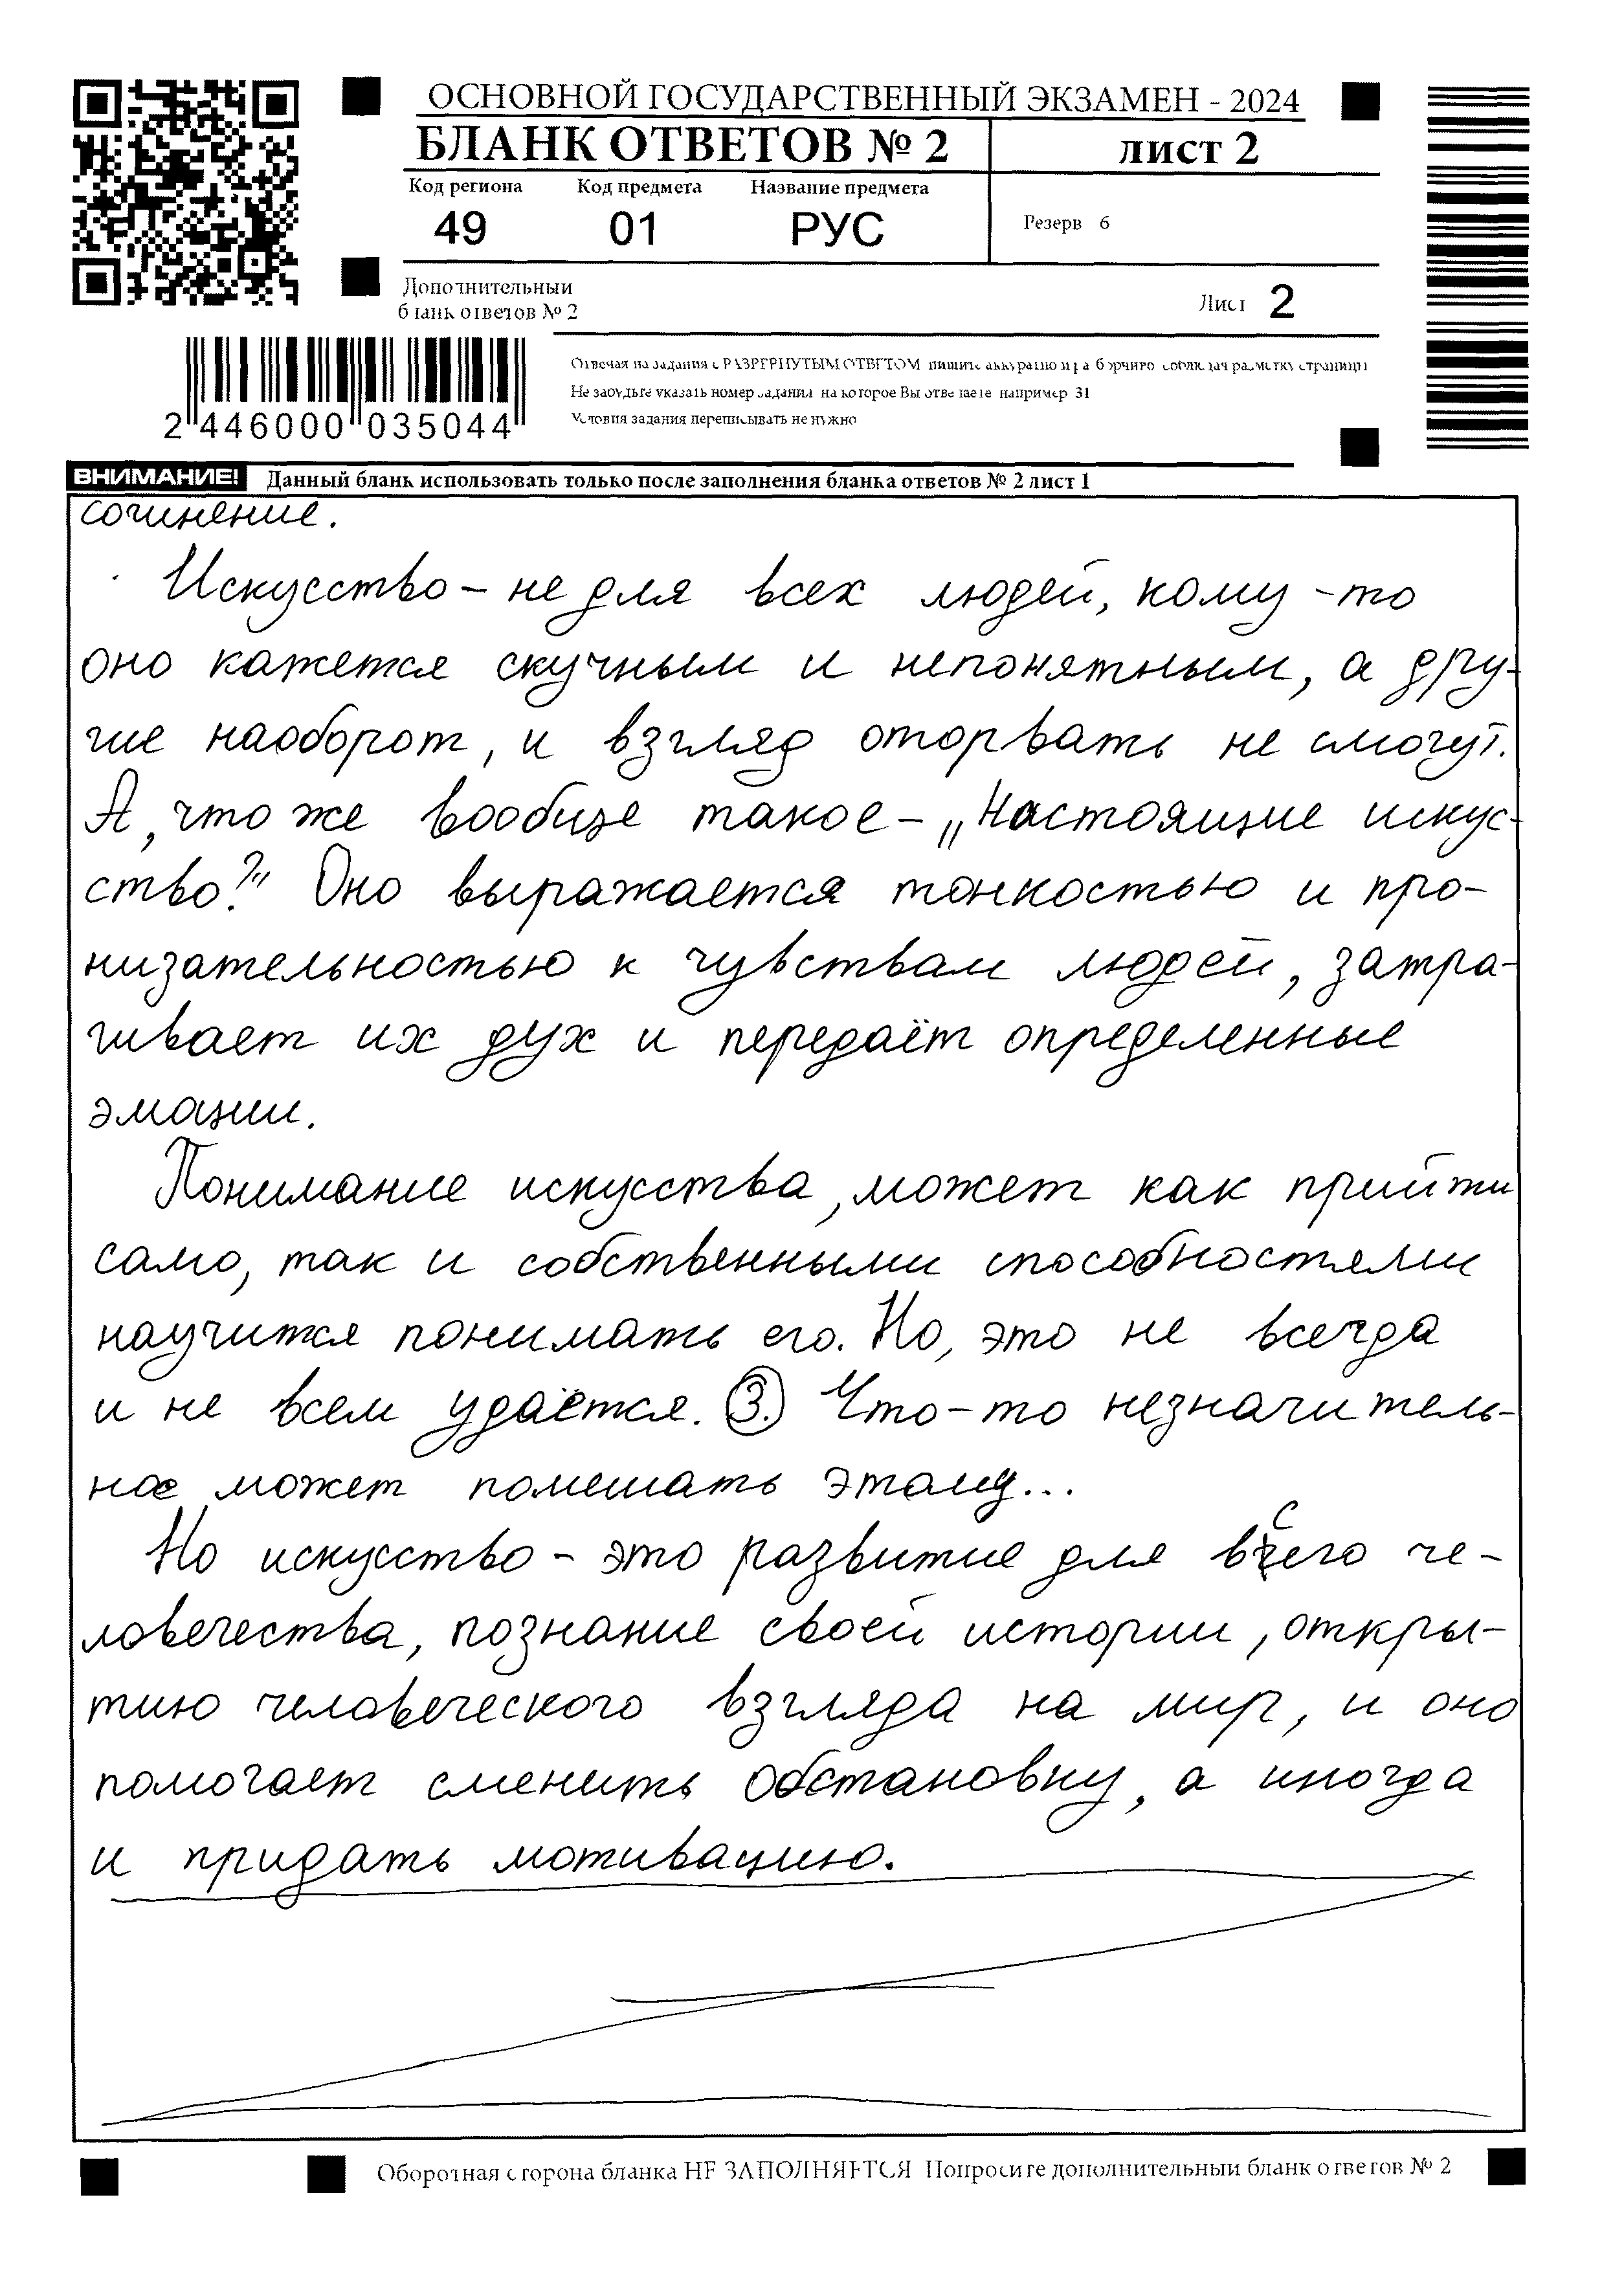 ОСНОВНОЙ ГОСУДАРСТВЕННЫЙ ЭКЗАМЕН - 2024
БЛАНК ОТВЕТОВ № 2
ЛИСТ 2
Код региона Код предмета Название предмета
49 01 РУС
Резерв 6
Дополнительный
бланк ответов № 2
Лист 2
Отвечая на задания с РАЗВЕРНУТЫМ ОТВЕТОМ пишите аккуратно и разборчиво соблюдая разметку страницы
Не забудьте указать номер задания на которое Вы отвечаете например 31
Условия задания переписывать не нужно
2 446000 035044
ВНИМАНИЕ! Данный бланк использовать только после заполнения бланка ответов № 2 лист 1
сочинение.
Искусство - не для всех людей, кому-то
оно кажется скучным и непонятным, а дру-
гие наоборот, и взгляд оторвать не смогут.
А, что же вообще такое - „Настоящие искус-
ство?" Оно выражается тонкостью и про-
низательностью к чувствам людей, затра-
гивает их дух и передаёт определенные
эмации.
Понимание искусства, может как прийти
само, так и собственными способностями
научится понимать его. Но, это не всегда
и не всем удаётся. 3. Что-то незначитель-
ное может помешать этому...
Но искусство - это развитие для всего че-
ловечества, познание своей истории, откры-
тию человеческого взгляда на мир, и оно
помогает сменить обстановку, а иногда
и придать мотивацию.
Оборотная сторона бланка НЕ ЗАПОЛНЯЕТСЯ Попросите дополнительный бланк ответов № 2